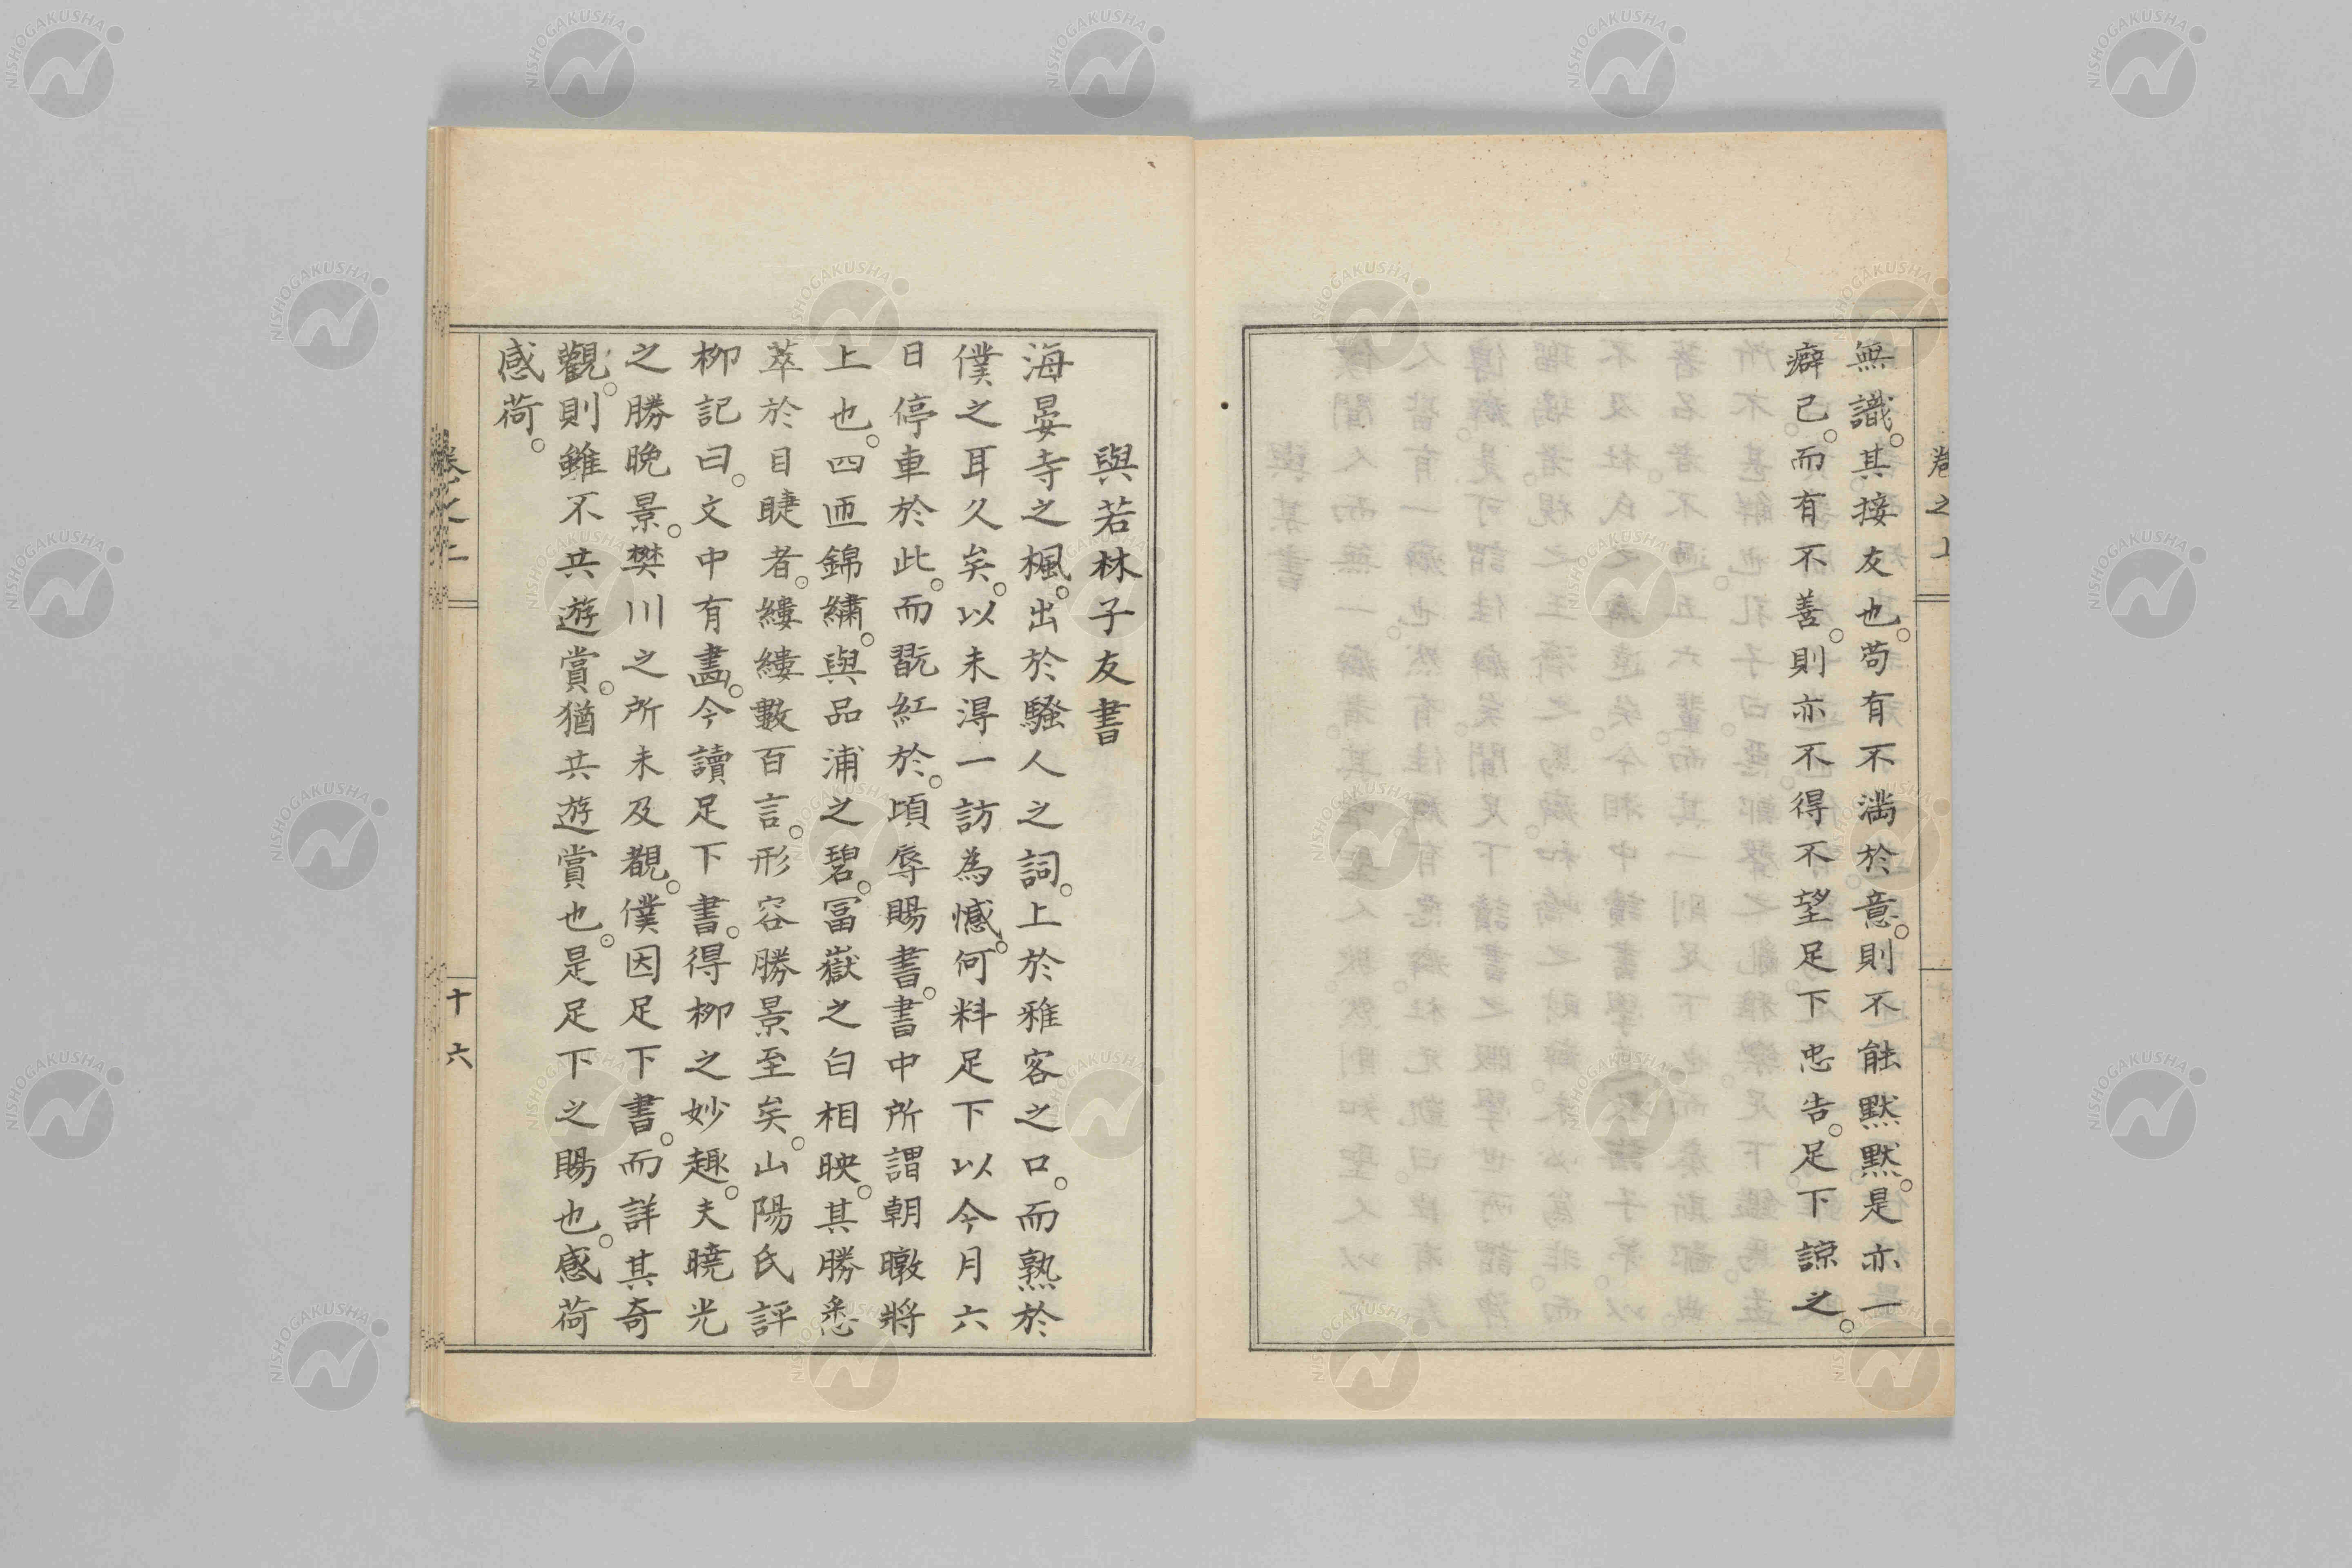 卷之上
無識。其接友也。苟有不滿於意。則不能默默。是亦一
癖已。而有不善。則亦不得不望足下忠告。足下諒之。
與若林子友書
海晏寺之楓。出於騷人之詞。上於雅客之口。而熟於
僕之耳久矣。以未得一訪為憾。何料足下以今月六
日停車於此。而翫紅於。頃辱賜書。書中所謂朝暾將
上也。四匝錦繡。與品浦之碧。冨嶽之白相映。其勝悉
萃於目睫者。縷縷數百言。形容勝景至矣。山陽氏評
柳記曰。文中有畵。今讀足下書。得柳之妙趣。夫曉光
之勝晩景。樊川之所未及覩。僕因足下書。而詳其奇
觀。則雖不共遊賞。猶共遊賞也。是足下之賜也。感荷
感荷。
卷之上
十六
NISHOGAKUSHA